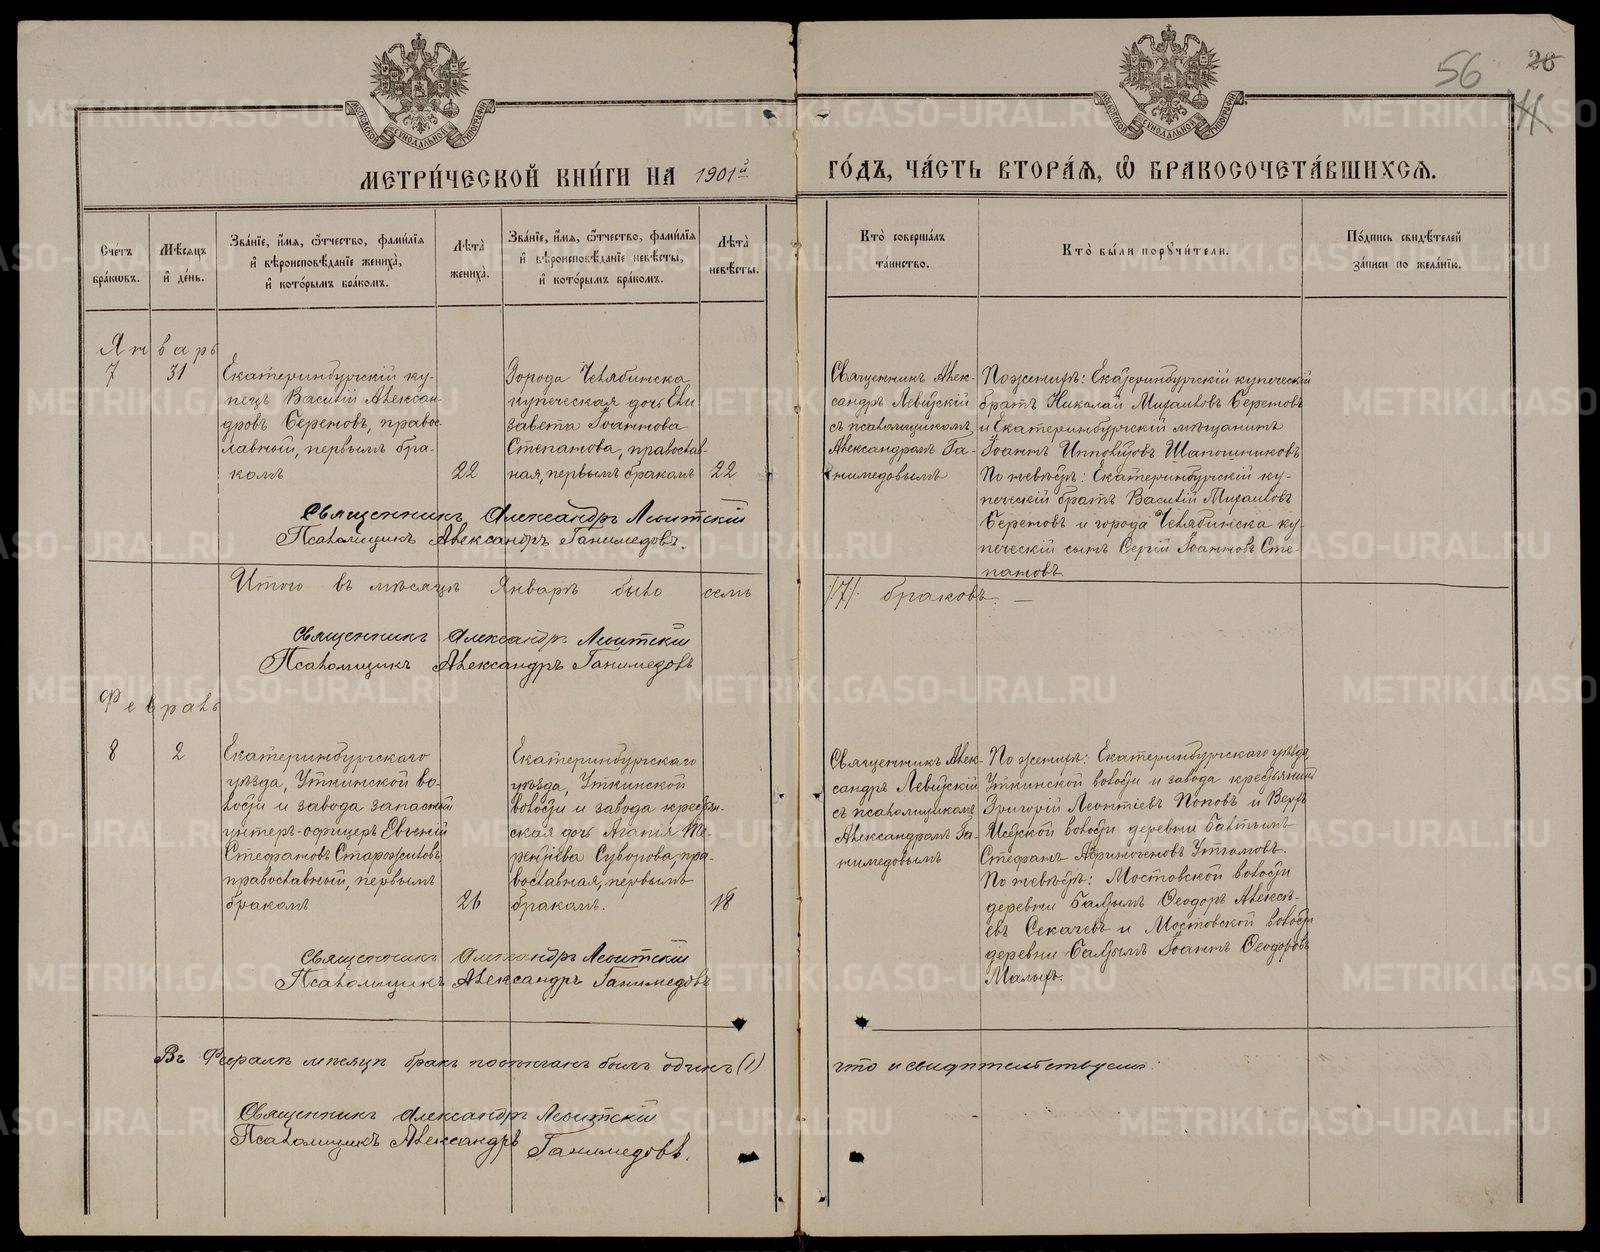 56 28
МОСКОВСКОЙ СѴНОДАЛЬНОЙ ТИПОГРАФІИ
МОСКОВСКОЙ СѴНОДАЛЬНОЙ ТИПОГРАФІИ
МЕТРИ́ЧЕСКОЙ КНИ́ГИ НА 1901й ГО́ДЪ, ЧА́СТЬ ВТОРА́Я, Ѽ БРАКОСОЧЕТА́ВШИХСЯ.
Сче́тъ
бра́кѡвъ.
Мѣ́сяцъ
и҆ де́нь.
Зва́нїе, и҆́мя, ѻ҆́тчество, фами́лїя
и҆ вѣроисповѣ́данїе жениха̀,
и҆ кото́рымъ бра́комъ.
Лѣ́та̀
жениха̀.
Зва́нїе, и҆́мя, ѻ҆́тчество, фами́лїя
и҆ вѣроисповѣ́данїе невѣ́сты,
и҆ кото́рымъ бра́комъ.
Лѣ́та̀
невѣ́сты.
Кто̀ соверша́лъ
та́инство.
Кто̀ бы́ли порꙋчи́тели.
По́дпись свидѣ́телей
за́писи по жела́нїю.
Январь
7 31
Екатеринбургскій ку-
пецъ Василій Алексан-
дровъ Беренов, правос-
лавный, первымъ бра-
комъ
22
Города Челябинска
купеческая дочь Ели-
завета Іоаннова
Степанова, православ-
ная, первымъ бракомъ
22
Священникъ Алек-
сандръ Левитскій
съ псаломщикомъ
Александромъ Га-
нимедовымъ
По женихѣ: Екатеринбургскій купеческій
братъ Николай Михаиловъ Береновъ
и Екатеринбургскій мѣщанинъ
Іоаннъ Ипполитовъ Шапошниковъ
По невѣстѣ: Екатеринбургскій ку-
печескій братъ Василій Михаиловъ
Береновъ и города Челябинска ку-
печескій сынъ Сергій Іоанновъ Сте-
пановъ.
Священникъ Александръ Левитскій
Псаломщикъ Александръ Ганимедовъ.
Итого въ мѣсяцѣ Январѣ было семь /:7/: браковъ. —
Священникъ Александръ Левитскій
Псаломщикъ Александръ Ганимедовъ
Февраль
8 2
Екатеринбургскаго
уѣзда, Уткинской во-
лости и завода запасный
унтеръ-офицеръ Евгеній
Стефановъ Старожиловъ,
православный, первымъ
бракомъ
26
Екатеринбургскаго
уѣзда, Уткинской
волости и завода крестьян-
ская дочь Агапія Те-
рентіева Суворова, пра-
вославная, первымъ
бракомъ.
18
Священникъ Алек-
сандръ Левитскій
съ псаломщикомъ
Александромъ Га-
нимедовымъ
По женихѣ: Екатеринбургскаго уѣзда,
Уткинской волости и завода крестьянинъ
Григорій Леонтіевъ Поповъ и Верхъ
Исетской волости деревни
Стефанъ
По невѣстѣ: Мостовской волости
деревни Балтымъ Ѳеодоръ Алексѣ-
евъ Секачевъ и Мостовской волости
деревни Балтымъ Іоаннъ Ѳеодоровъ
Малыхъ.
Священникъ Александръ Левитскій
Псаломщикъ Александръ Ганимедовъ
Въ Февралѣ мѣсяцѣ бракъ былъ одинъ (1) что и свидѣтельствуемъ:
Священникъ Александръ Левитскій
Псаломщикъ Александръ Ганимедовъ.
METRIKI.GASO-URAL.RU